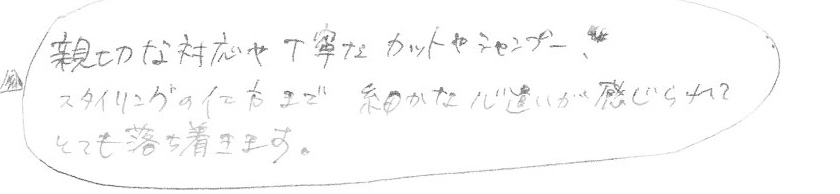 親切な対応や丁寧なカットやシャンプー、
スタイリングの仕方まで 細かな心遣いが感じられて
とても落ち着きます。